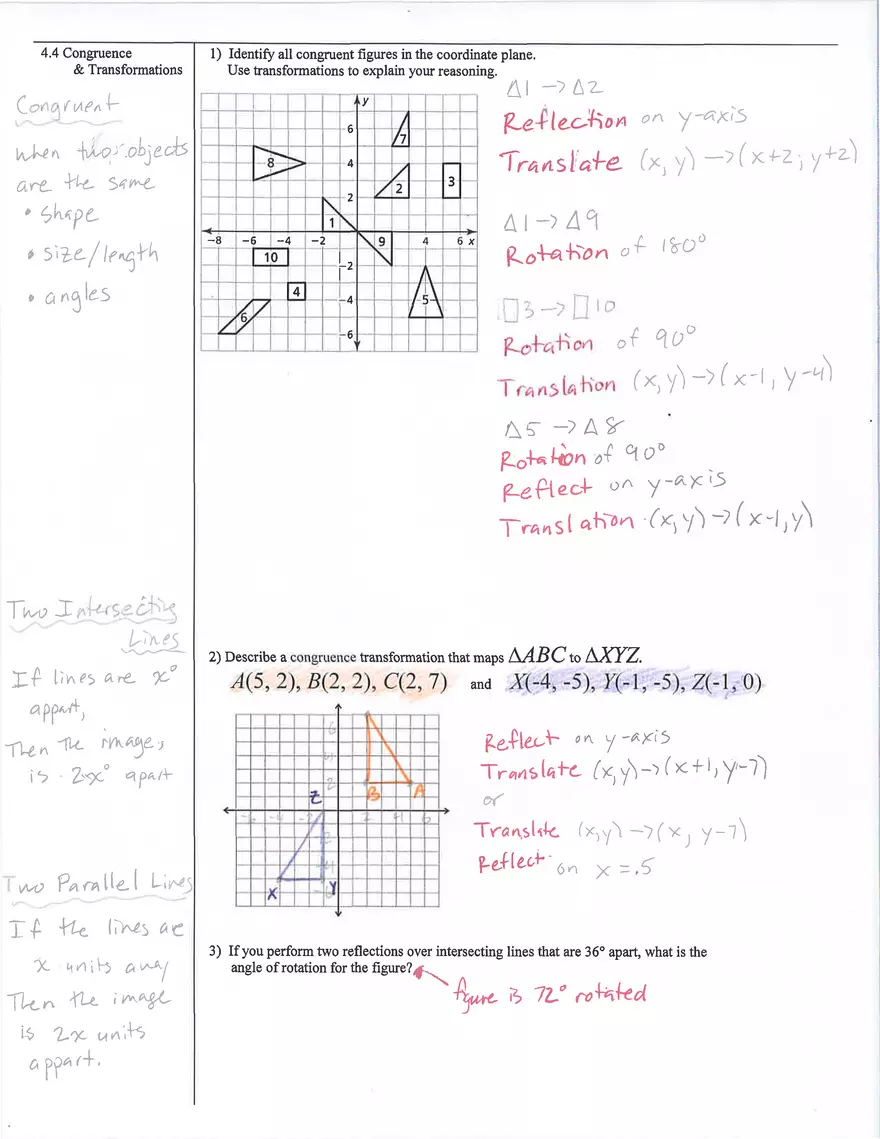 4.4 Congruence
& Transformations
Congruent
when two objects
are the same
• shape
• size/length
• angles
1) Identify all congruent figures in the coordinate plane.
Use transformations to explain your reasoning.
y
6
7
8
4
2
3
2
1
−8 −6 −4 −2
9
4
6 x
10
−2
4
−4
5
6
−6
Δ1 → Δ2
Reflection on y-axis
Translate (x, y) → (x+2, y+2)
Δ1 → Δ9
Rotation of 180°
▯3 → ▯10
Rotation of 90°
Translation (x, y) → (x-1, y-4)
Δ5 → Δ8
Rotation of 90°
Reflect on y-axis
Translation (x, y) → (x-1, y)
Two Intersecting
Lines
If lines are x°
appart,
Then The image,
is 2x° apart
2) Describe a congruence transformation that maps ΔABC to ΔXYZ.
A(5, 2), B(2, 2), C(2, 7) and X(-4, -5), Y(-1, -5), Z(-1, 0)
6
4
2
B A
Z
-6 -4 -2 2 4 6
X Y
Reflect on y-axis
Translate (x, y) → (x+1, y-7)
or
Translate (x, y) → (x, y-7)
Reflect on x = .5
Two Parallel Lines
If the lines are
x units away
Then the image
is 2x units
appart.
3) If you perform two reflections over intersecting lines that are 36° apart, what is the
angle of rotation for the figure?
figure is 72° rotated